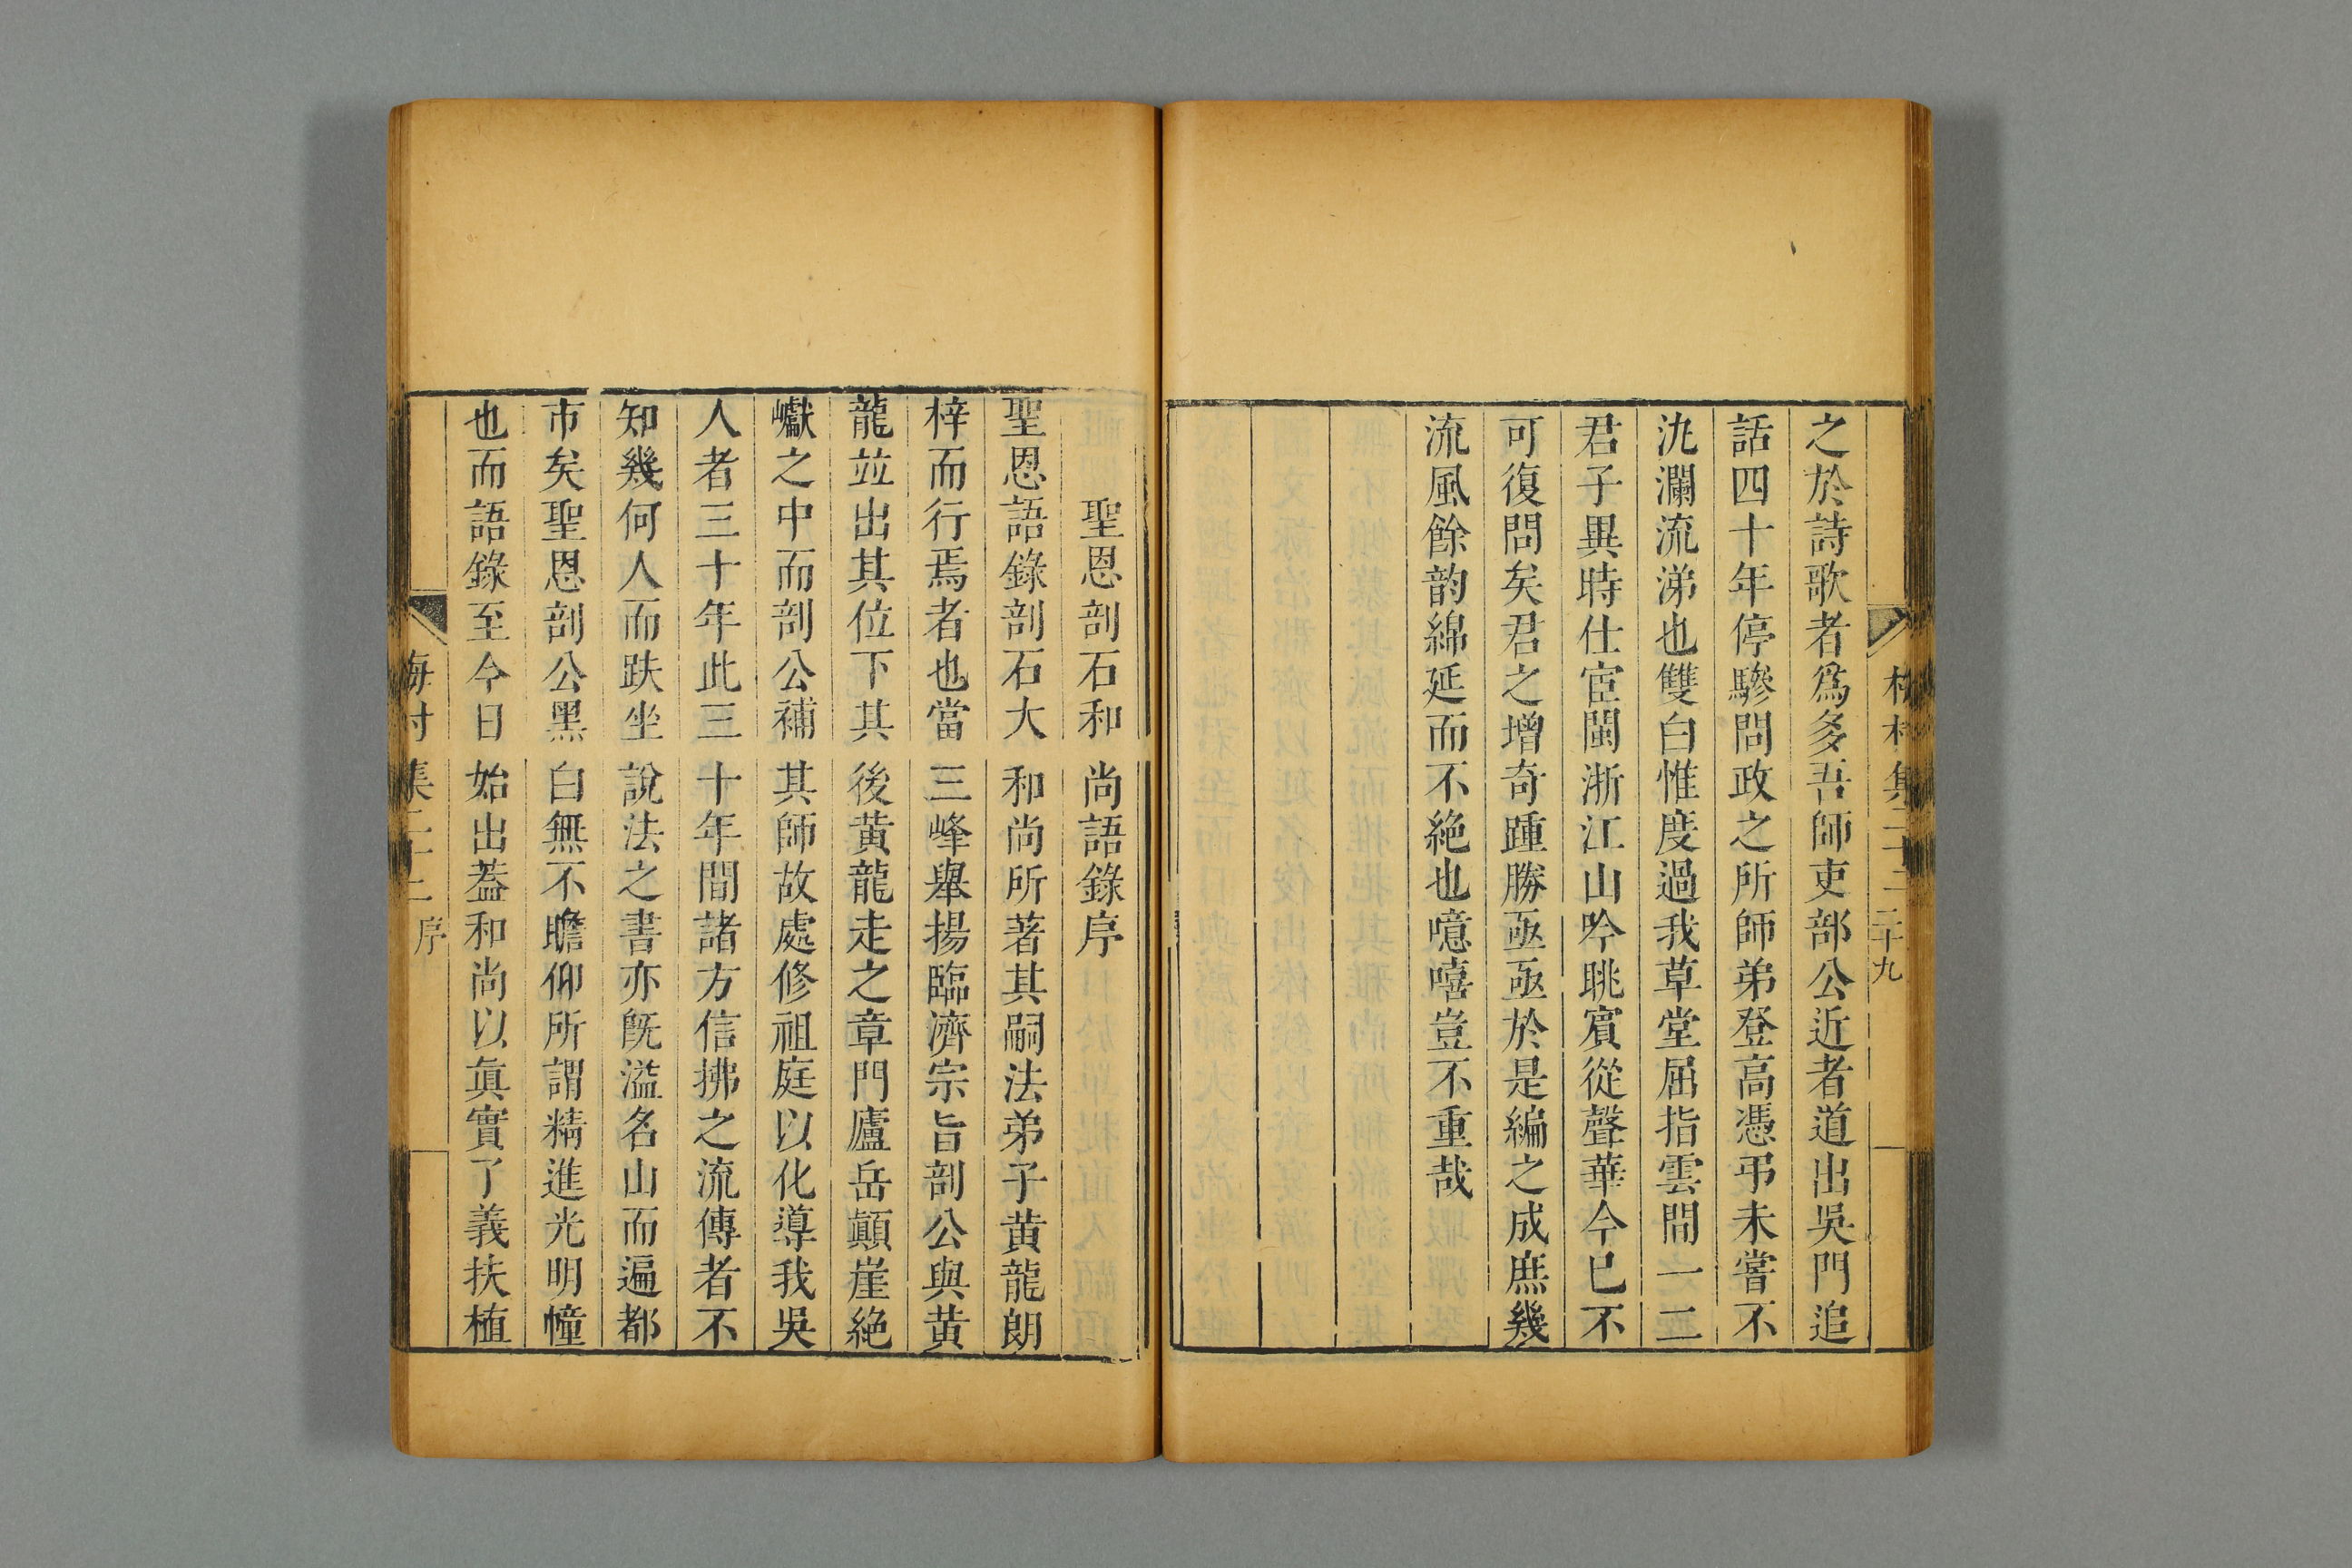 之於詩歌者爲多吾師吏部公近者道出吳門追
話四十年停驂問政之所師弟登高憑弔未嘗不
汍瀾流涕也雙白惟度過我草堂屈指雲間一二
君子異時仕宦閩浙江山吟眺賓從聲華今已不
可復問矣君之增奇踵勝亟亟於是編之成庶幾
流風餘韵綿延而不絶也噫嘻豈不重哉
聖恩剖石和尚語錄序
聖恩語錄剖石大和尚所著其嗣法弟子黄龍朗
梓而行焉者也當三峰舉揚臨濟宗旨剖公與黄
龍並出其位下其後黄龍走之章門廬岳顛崖絶
巘之中而剖公補其師故處修祖庭以化導我吳
人者三十年此三十年間諸方信拂之流傳者不
知幾何人而趺坐說法之書亦旣溢名山而遍都
市矣聖恩剖公黑白無不瞻仰所謂精進光明幢
也而語錄至今日始出葢和尚以眞實了義扶植
梅村集二十二 序